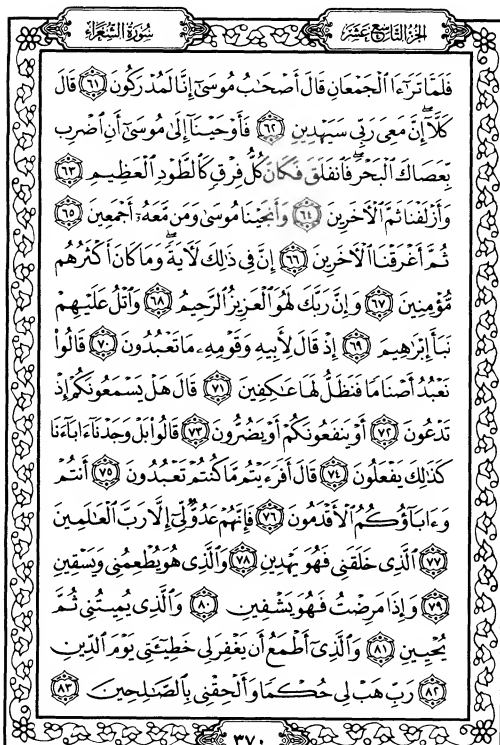 الجزء التاسع عشر
سورة الشعراء
فَلَمَّا تَرَٰٓءَا ٱلْجَمْعَانِ قَالَ أَصْحَٰبُ مُوسَىٰٓ إِنَّا لَمُدْرَكُونَ ٦١ قَالَ
كَلَّآ ۖ إِنَّ مَعِىَ رَبِّى سَيَهْدِينِ ٦٢ فَأَوْحَيْنَآ إِلَىٰ مُوسَىٰٓ أَنِ ٱضْرِب
بِّعَصَاكَ ٱلْبَحْرَ ۖ فَٱنفَلَقَ فَكَانَ كُلُّ فِرْقٍ كَٱلطَّوْدِ ٱلْعَظِيمِ ٦٣
وَأَزْلَفْنَا ثَمَّ ٱلْءَاخَرِينَ ٦٤ وَأَنجَيْنَا مُوسَىٰ وَمَن مَّعَهُۥٓ أَجْمَعِينَ ٦٥
ثُمَّ أَغْرَقْنَا ٱلْءَاخَرِينَ ٦٦ إِنَّ فِى ذَٰلِكَ لَءَايَةً ۖ وَمَا كَانَ أَكْثَرُهُم
مُّؤْمِنِينَ ٦٧ وَإِنَّ رَبَّكَ لَهُوَ ٱلْعَزِيزُ ٱلرَّحِيمُ ٦٨ وَٱتْلُ عَلَيْهِمْ
نَبَأَ إِبْرَٰهِيمَ ٦٩ إِذْ قَالَ لِأَبِيهِ وَقَوْمِهِۦ مَا تَعْبُدُونَ ٧٠ قَالُوا۟
نَعْبُدُ أَصْنَامًا فَنَظَلُّ لَهَا عَٰكِفِينَ ٧١ قَالَ هَلْ يَسْمَعُونَكُمْ إِذْ
تَدْعُونَ ٧٢ أَوْ يَنفَعُونَكُمْ أَوْ يَضُرُّونَ ٧٣ قَالُوا۟ بَلْ وَجَدْنَآ ءَابَآءَنَا
كَذَٰلِكَ يَفْعَلُونَ ٧٤ قَالَ أَفَرَءَيْتُم مَّا كُنتُمْ تَعْبُدُونَ ٧٥ أَنتُمْ
وَءَابَآؤُكُمُ ٱلْأَقْدَمُونَ ٧٦ فَإِنَّهُمْ عَدُوٌّ لِّىٓ إِلَّا رَبَّ ٱلْعَٰلَمِينَ
٧٧ ٱلَّذِى خَلَقَنِى فَهُوَ يَهْدِينِ ٧٨ وَٱلَّذِى هُوَ يُطْعِمُنِى وَيَسْقِينِ
٧٩ وَإِذَا مَرِضْتُ فَهُوَ يَشْفِينِ ٨٠ وَٱلَّذِى يُمِيتُنِى ثُمَّ
يُحْيِينِ ٨١ وَٱلَّذِىٓ أَطْمَعُ أَن يَغْفِرَ لِى خَطِيٓـَٔتِى يَوْمَ ٱلدِّينِ
٨٢ رَبِّ هَبْ لِى حُكْمًا وَأَلْحِقْنِى بِٱلصَّٰلِحِينَ ٨٣
٣٧٠